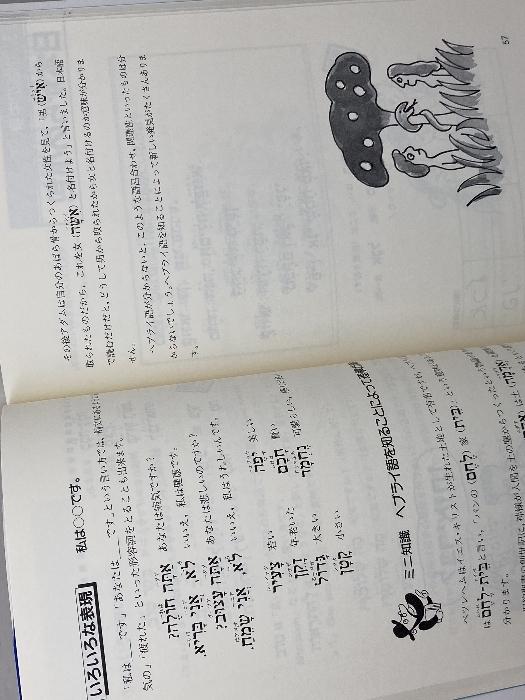 いろいろな表現　私は○○です。
「私は____です」「あなたは____です」という言い方では、
気の」「疲れた」といった形容詞をとることも出来ます。
אַתָּה חוֹלֶה?　あなたは病気ですか？
לֹא, אֲנִי בָּרִיא.　いいえ、私は健康です。
אַתָּה עָצוּב?　あなたは悲しいのですか？
לֹא, אֲנִי שָׂמֵחַ.　いいえ、私はうれしいんです。
צָעִיר　若い　יָפֶה　美しい
זָקֵן　年老いた　חָכָם　賢い
גָּדוֹל　大きい　נֶחְמָד
קָטָן　小さい
ミニ知識　ヘブライ語を知ることによって
ベツレヘムはイエス・キリストが生まれた土地として有名です
は בֵּית-לֶחֶם と言い、「パンの（לֶחֶם）家（בֵּית）」という意味
分かります。
その後アダムは自分のあばら骨からつくられた女性を見て、「男（אִישׁ）から
取られたものだから、これを女（אִשָּׁה）と名付けよう」と言いました。日本語
で読むだけだと、どうして男から取られたから女と名付けるのか意味が分かりま
せん。
ヘブライ語が分からないと、このような語呂合わせ、関連性といったものは分
からないでしょう。ヘブライ語を知ることによって新しい発見がたくさんありま
す。
57